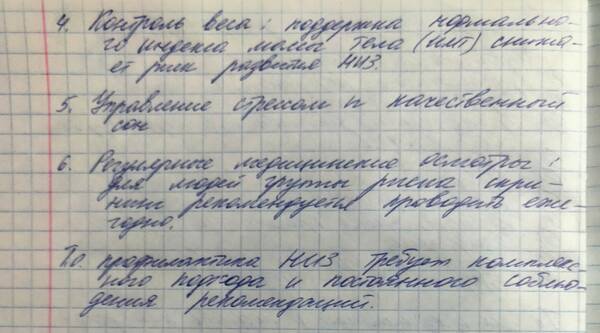 4. Контроль веса: поддержка нормально-
го индекса массы тела (ИМТ) снижа-
ет риск развития НИЗ.
5. Управление стрессом и качественный
сон
6. Регулярные медицинские осмотры:
для людей группы риска скри-
нинг рекомендуется проводить еже-
годно.
То. профилактика НИЗ требует комплекс-
ного подхода и постоянного соблю-
дения рекомендаций.